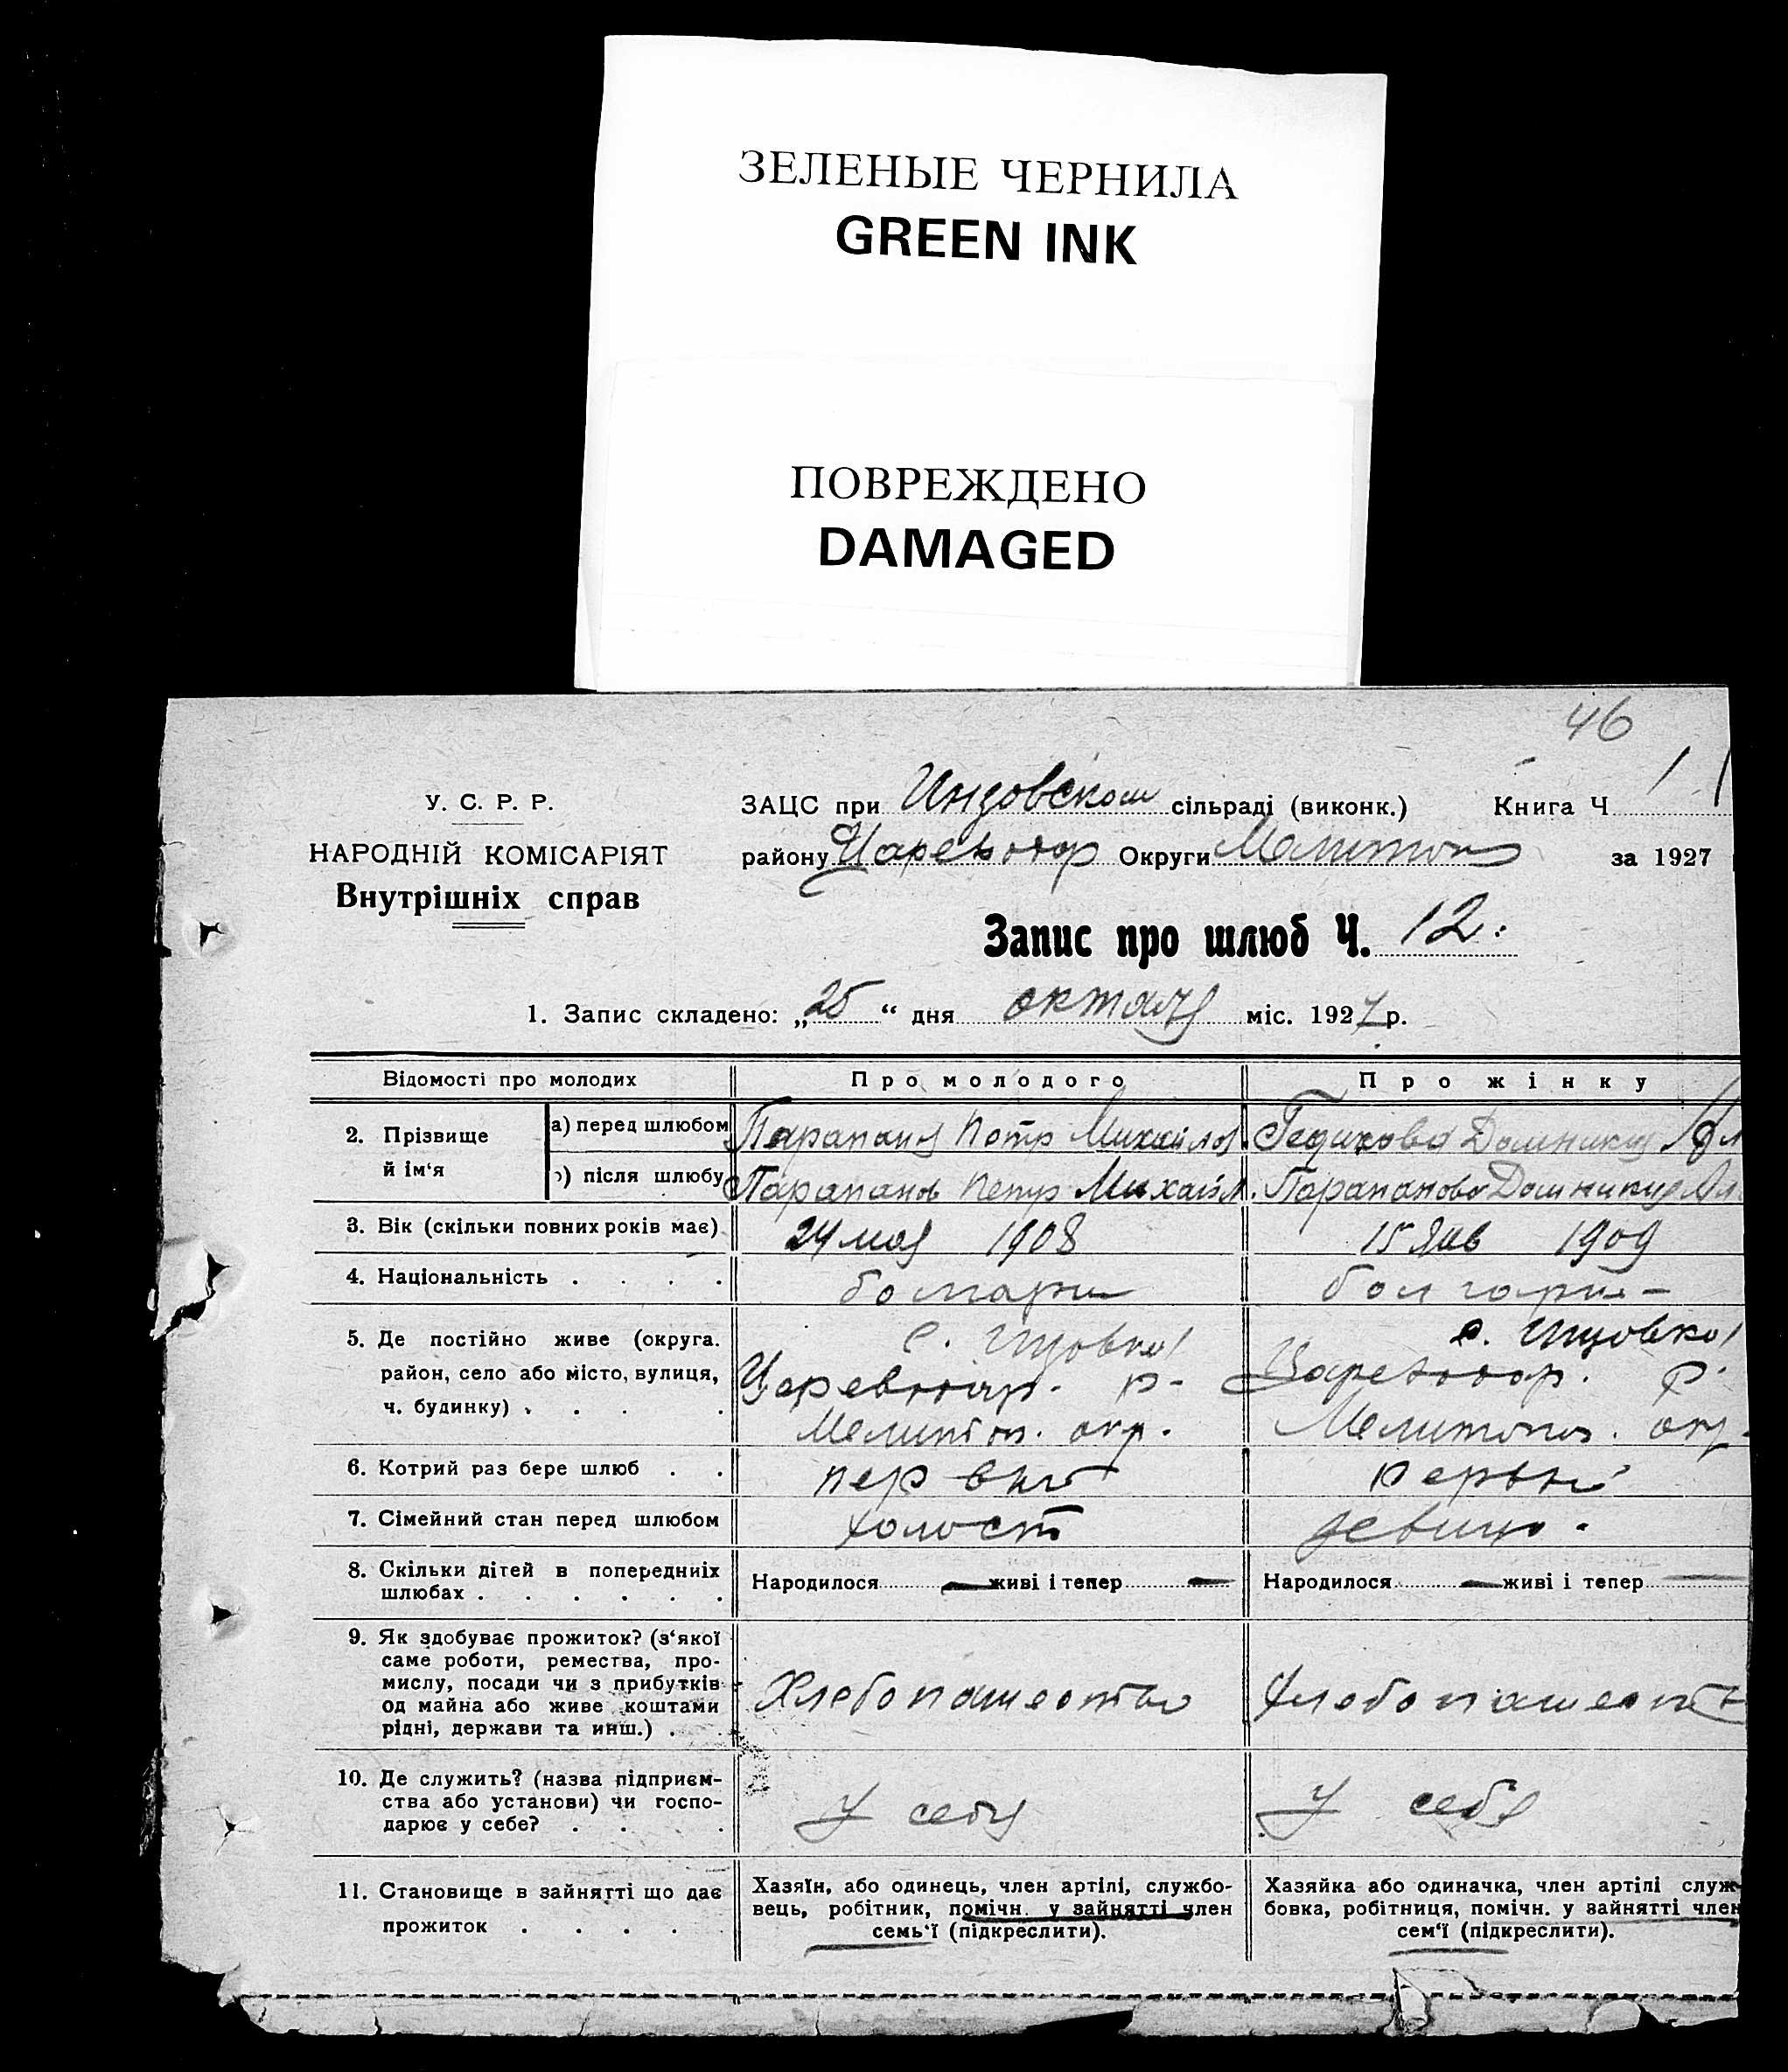 ЗЕЛЕНЫЕ ЧЕРНИЛА
GREEN INK
ПОВРЕЖДЕНО
DAMAGED
46
У. С. Р. Р.
НАРОДНІЙ КОМІСАРІЯТ
Внутрішніх справ
ЗАЦС при Инзовском сільраді (виконк.) Книга Ч 1
району Царевод Округи Мелитоп за 1927
Запис про шлюб Ч. 12.
1. Запис складено: „25“ дня октября міс. 1927 р.
Відомості про молодих Про молодого Про жінку
2. Прізвище й ім‘я
а) перед шлюбом Парапанов Петр Михайлов. Домникия
) після шлюбу Парапанов Петр Михайл. Парапанова Домникия
3. Вік (скільки повних років має) 24 мая 1908 15 янв 1909
4. Національність . . . . болгарин болгарин
5. Де постійно живе (округа. с. Инзовка с. Инзовка
район, село або місто, вулиця, Царевод. р- Царевод. р.
ч. будинку) . . . . Мелитоп. окр. Мелитопол. окр.
6. Котрий раз бере шлюб . . первый первый
7. Сімейний стан перед шлюбом холост девица.
8. Скільки дітей в попередніх шлюбах . . . . . . Народилося — живі і тепер — Народилося — живі і тепер —
9. Як здобуває прожиток? (з‘якої
саме роботи, ремества, про-
мислу, посади чи з прибутків Хлебопашество Хлебопашест
од майна або живе коштами
рідні, держави та инш.) .
10. Де служить? (назва підприєм-
ства або установи) чи госпо- У себя У себя
дарює у себе? . . .
11. Становище в зайнятті що дає
прожиток . . . .
Хазяїн, або одинець, член артілі, службо-
вець, робітник, помічн. у зайнятті член
семь‘ї (підкреслити).
Хазяйка або одиначка, член артілі служ-
бовка, робітниця, помічн. у зайнятті член
сем‘ї (підкреслити).